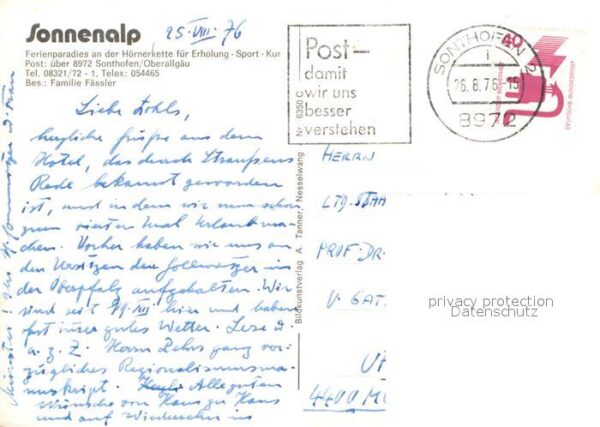 Sonnenalp
Ferienparadies an der Hörnerkette für Erholung - Sport - Kur
Post: über 8972 Sonthofen/Oberallgäu
Tel. 08321/72 - 1, Telex: 054465
Bes.: Familie Fässler
25. VIII. 76
Liebe
herzliche Grüße aus dem
Hotel, das durch Straußens
Rede bekannt geworden
ist, und in dem wir nun schon
zum vierten Mal Urlaub ma-
chen. Vorher haben wir uns an
den Ursitzen der Gollwitzer in
der Oberpfalz aufgehalten. Wir
sind seit 19. VIII. hier und haben
fast immer gutes Wetter. Lese d.
a. z. Z. Herrn Zehrs ganz vor-
zügliches Regionalismusma-
nuskript. Alle guten
Wünsche von Haus zu Haus
und auf Wiedersehen in
Münster!
Bildkunstverlag A. Tanner, Nesselwang
Nr. 6350 C
Post -
damit
wir uns
besser
verstehen
SONTHOFEN 2
i
26.8.76-15
8972
40
DEUTSCHE BUNDESPOST
HERRN
LTD.
PROF. DR.
V. GATT
4400 MÜ
privacy protection
Datenschutz